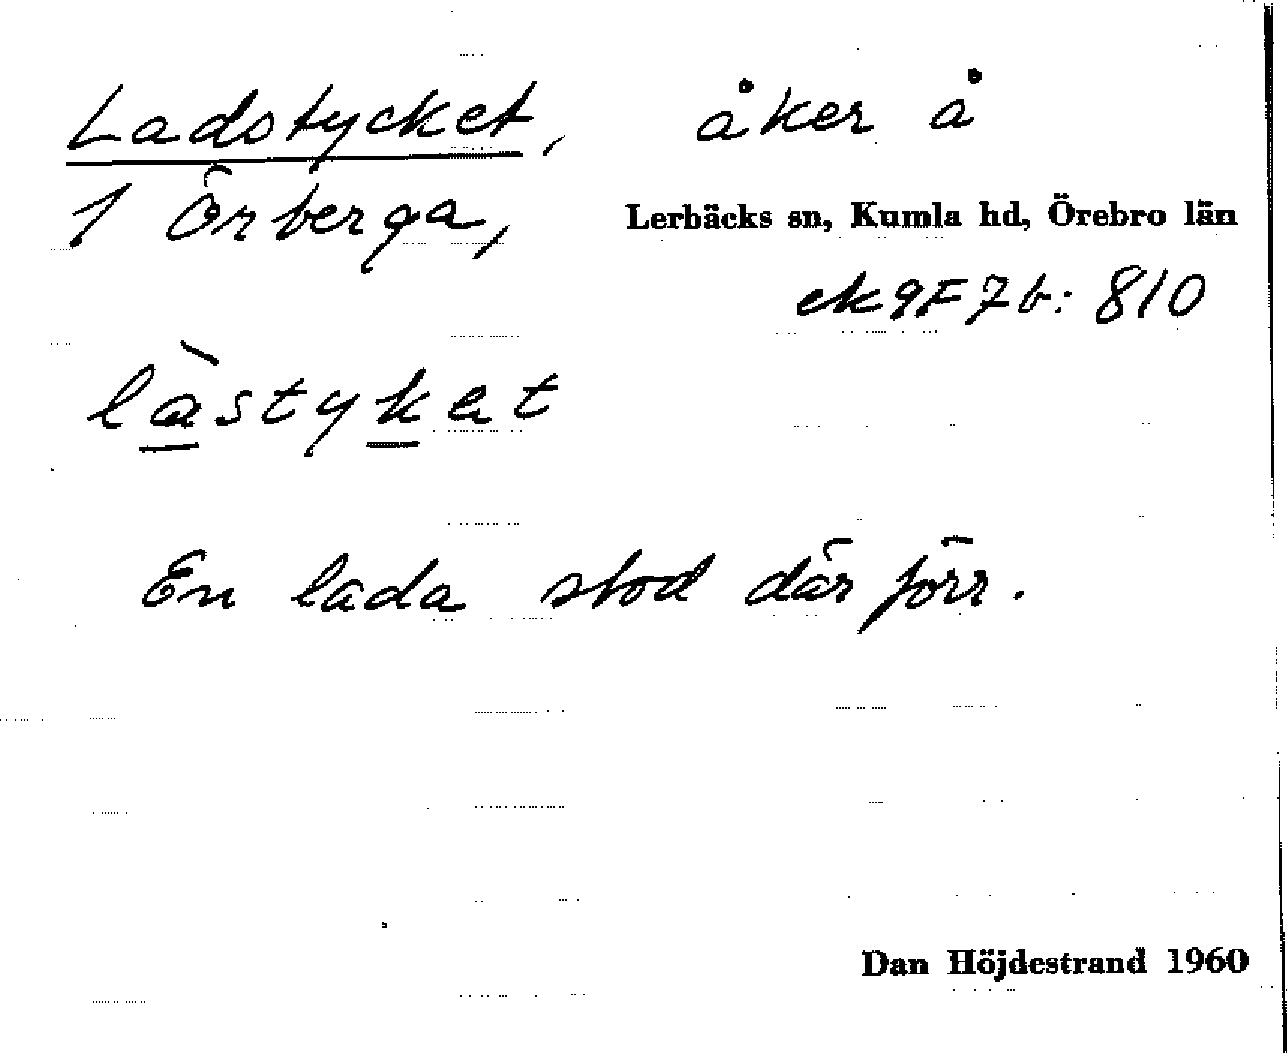 Ladstycket, åker å
1 Örberga, Lerbäcks sn, Kumla hd, Örebro län
ek 9F7b: 810
làstyket
En lada stod där förr.
Dan Höjdestrand 1960